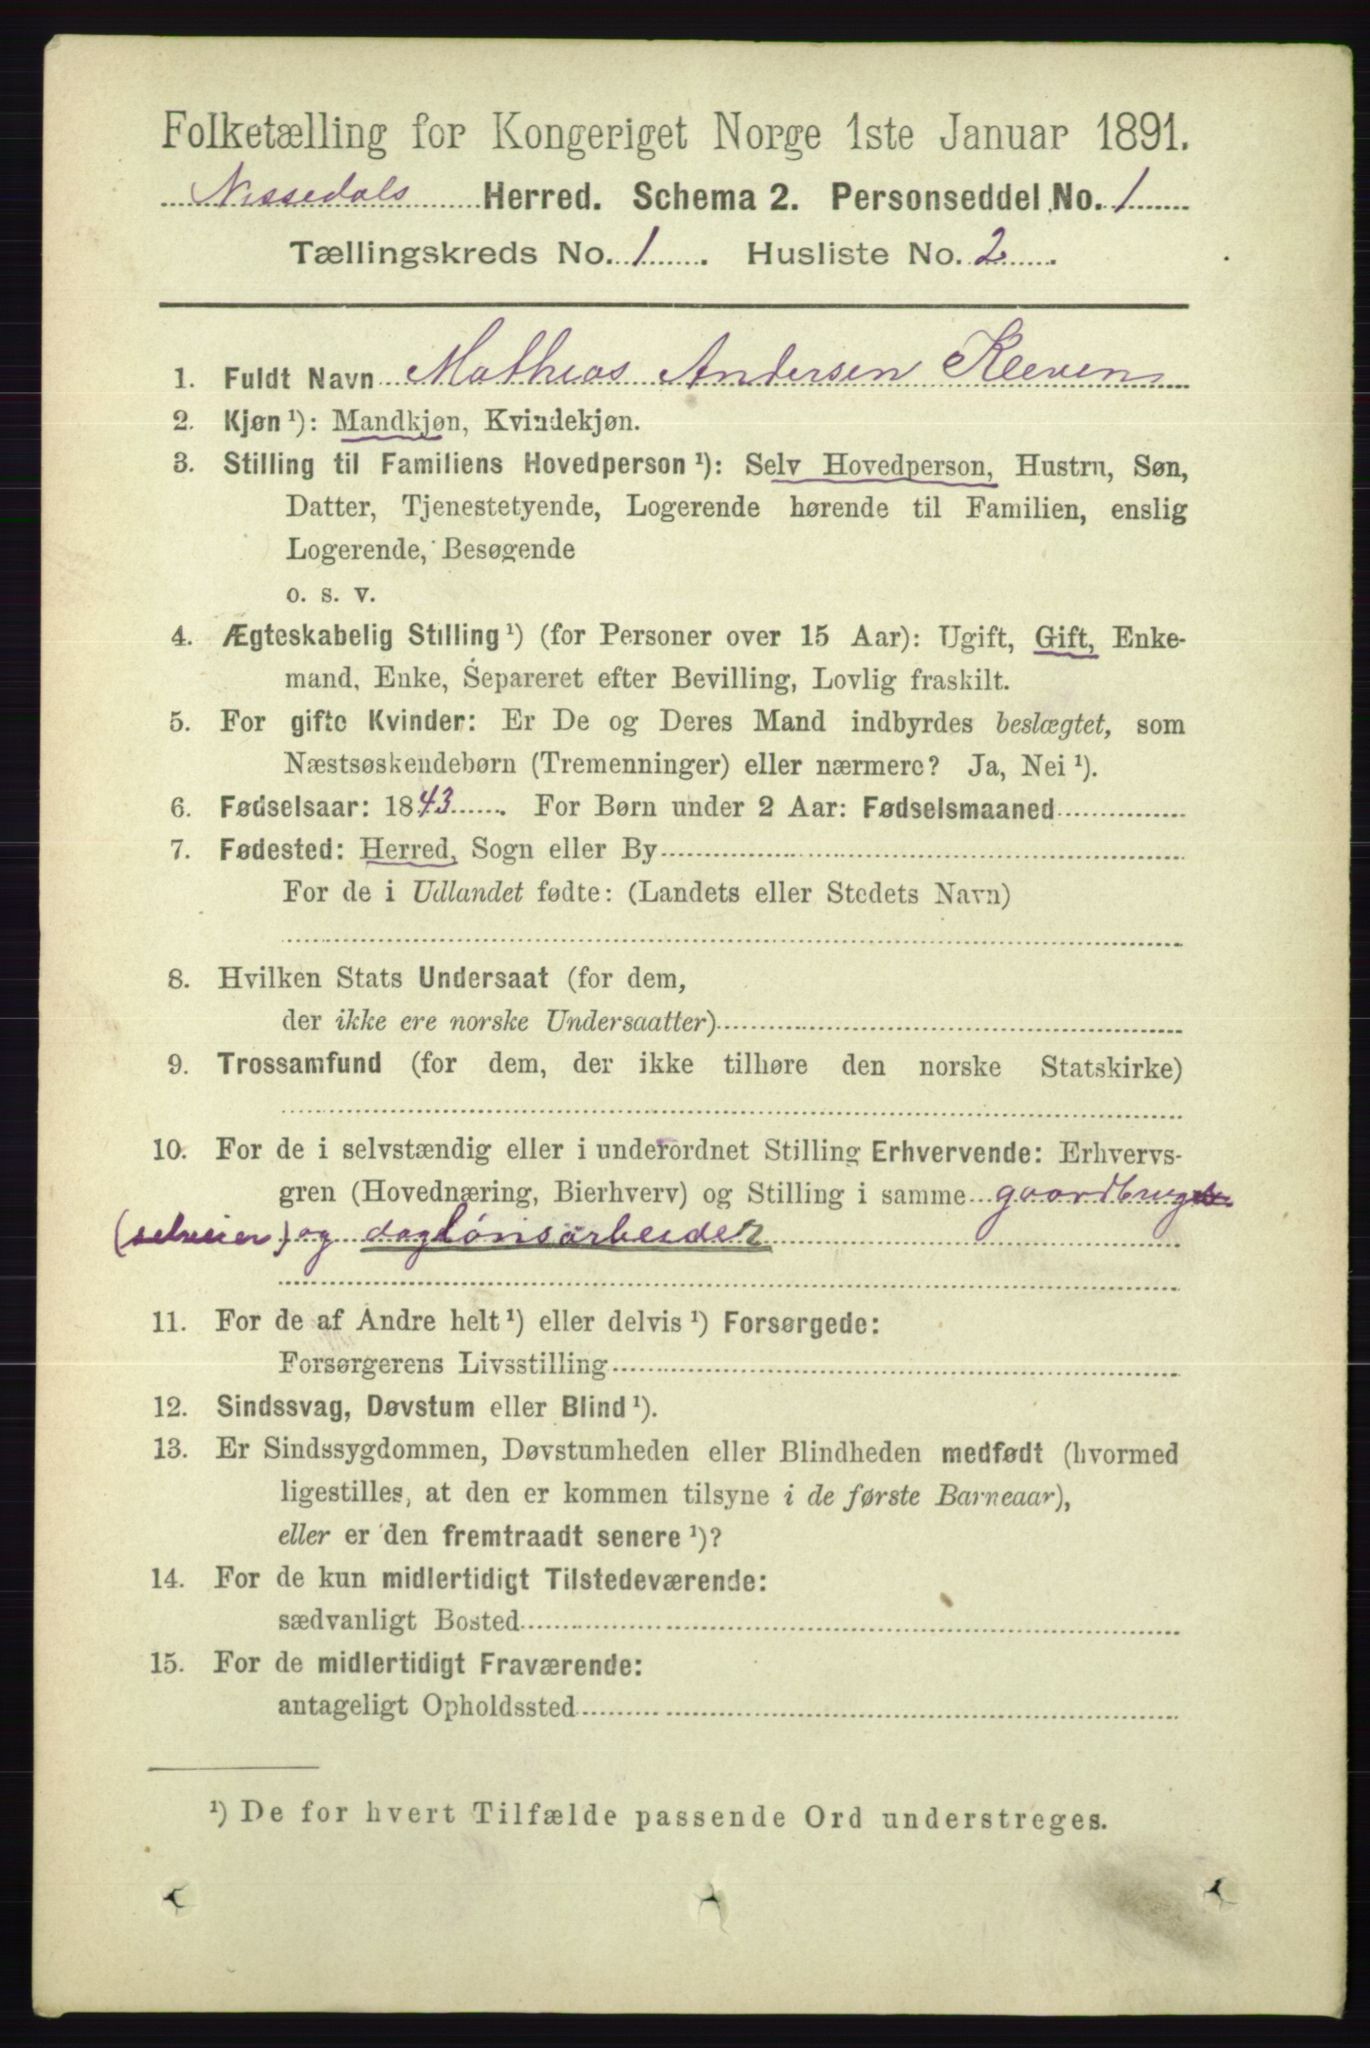 Folketælling for Kongeriget Norge 1ste Januar 1891.
Nissedals Herred. Schema 2. Personseddel No. 1
Tællingskreds No. 1. Husliste No. 2.
1. Fuldt Navn Mathias Andersen Kleven
2. Kjøn ¹): Mandkjøn, Kvindekjøn.
3. Stilling til Familiens Hovedperson ¹): Selv Hovedperson, Hustru, Søn,
Datter, Tjenestetyende, Logerende hørende til Familien, enslig
Logerende, Besøgende
o. s. v.
4. Ægteskabelig Stilling ¹) (for Personer over 15 Aar): Ugift, Gift, Enke-
mand, Enke, Separeret efter Bevilling, Lovlig fraskilt.
5. For gifte Kvinder: Er De og Deres Mand indbyrdes beslægtet, som
Næstsøskendebørn (Tremenninger) eller nærmere? Ja, Nei ¹).
6. Fødselsaar: 1843. For Børn under 2 Aar: Fødselsmaaned
7. Fødested: Herred, Sogn eller By
For de i Udlandet fødte: (Landets eller Stedets Navn)
8. Hvilken Stats Undersaat (for dem,
der ikke ere norske Undersaatter)
9. Trossamfund (for dem, der ikke tilhøre den norske Statskirke)
10. For de i selvstændig eller i underordnet Stilling Erhvervende: Erhvervs-
gren (Hovednæring, Bierhverv) og Stilling i samme gaardbruger
(selveier) og daglønsarbeider
11. For de af Andre helt ¹) eller delvis ¹) Forsørgede:
Forsørgerens Livsstilling
12. Sindssvag, Døvstum eller Blind ¹).
13. Er Sindssygdommen, Døvstumheden eller Blindheden medfødt (hvormed
ligestilles, at den er kommen tilsyne i de første Barneaar),
eller er den fremtraadt senere ¹)?
14. For de kun midlertidigt Tilstedeværende:
sædvanligt Bosted
15. For de midlertidigt Fraværende:
antageligt Opholdssted
¹) De for hvert Tilfælde passende Ord understreges.